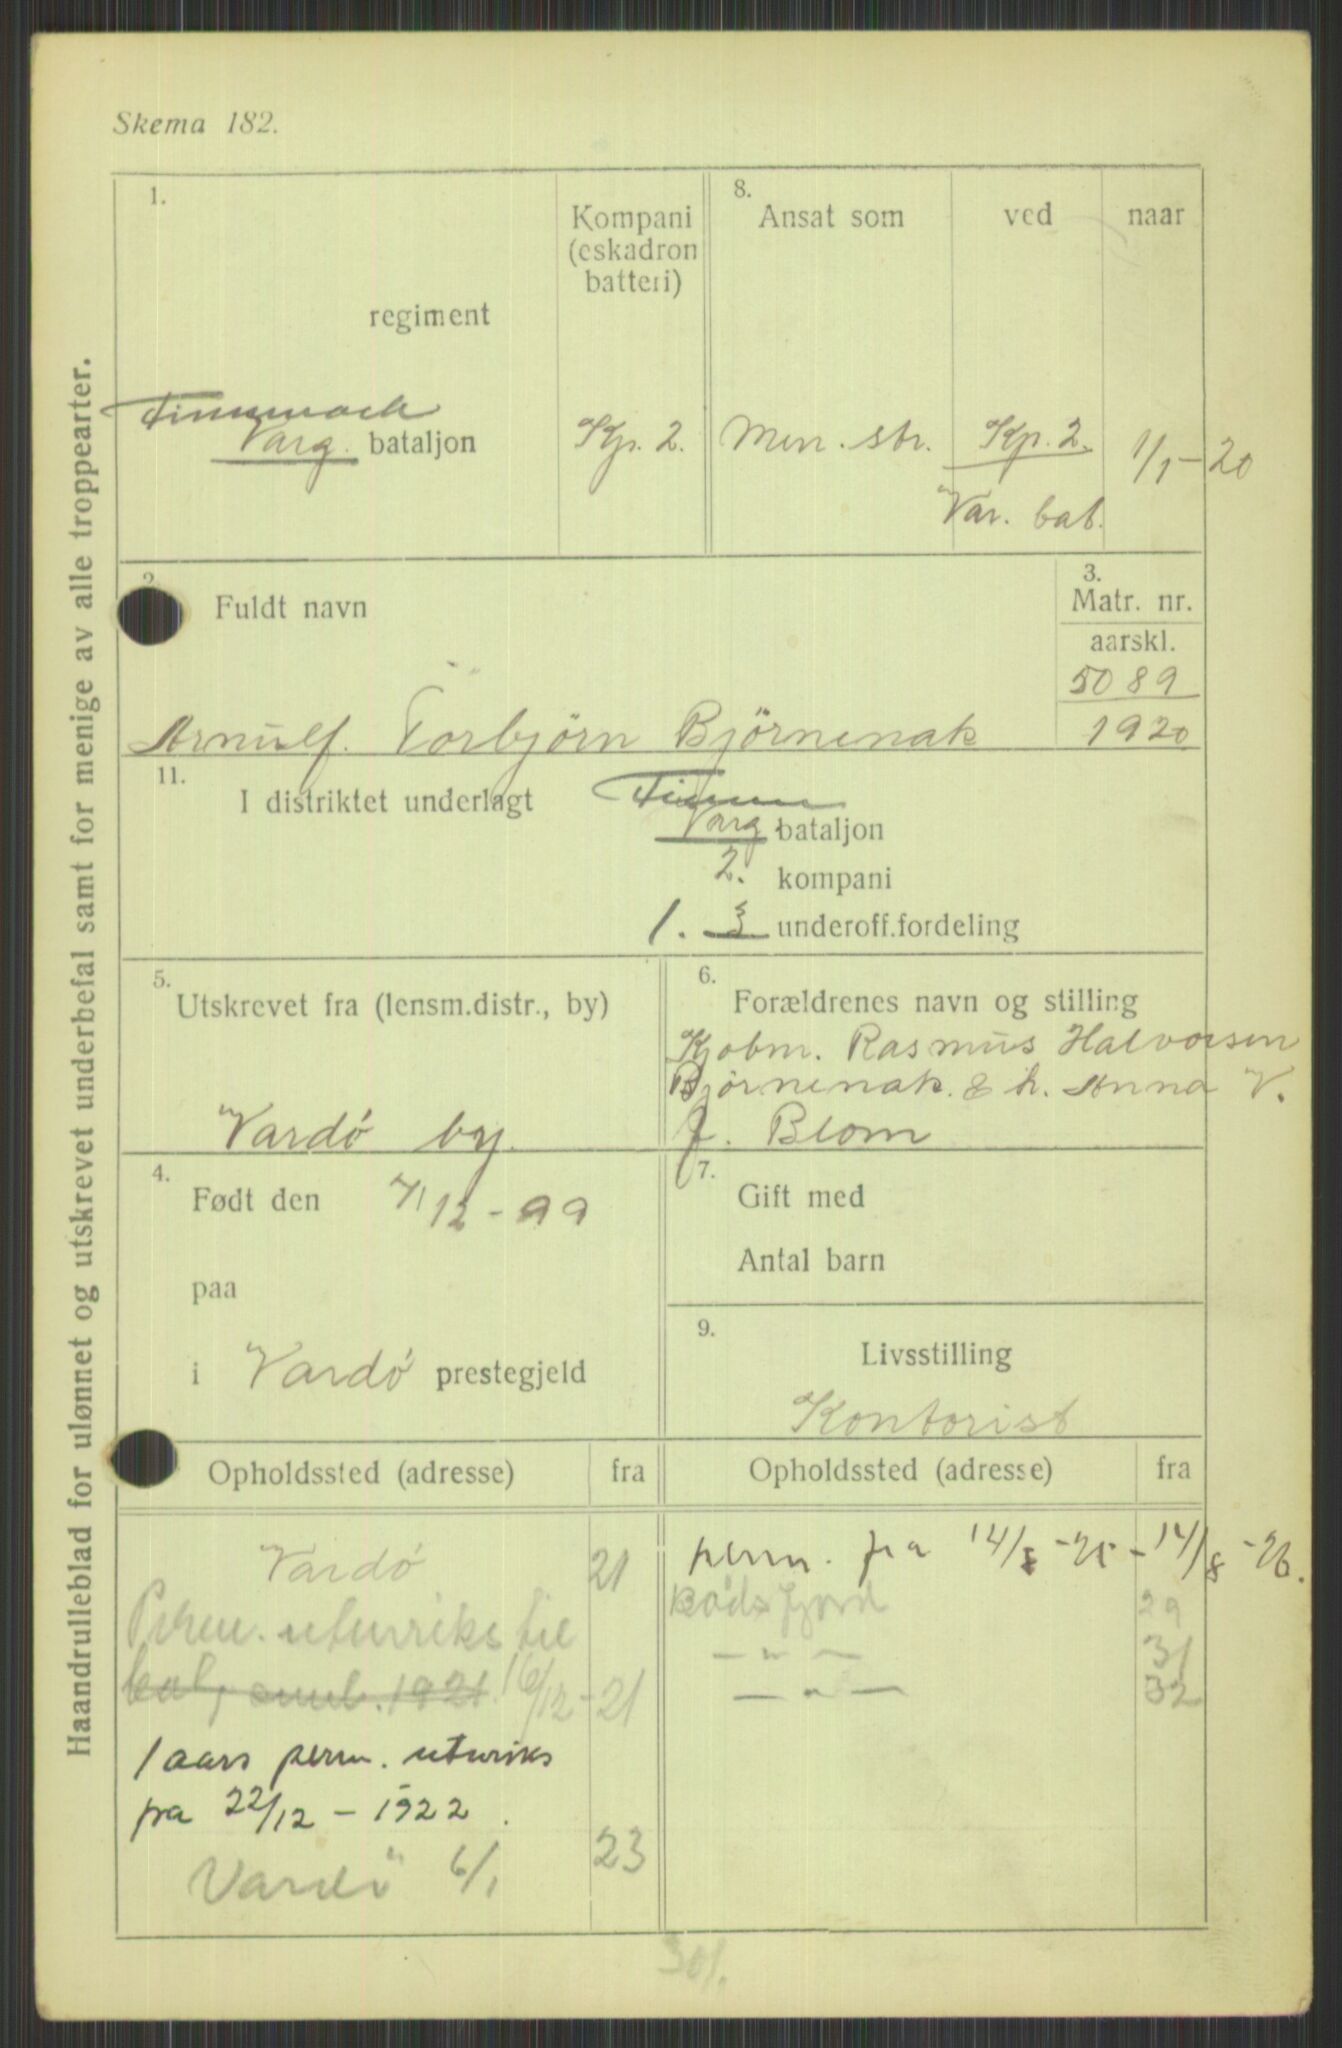 Skema 182.
Haandrulleblad for ulønnet og utskrevet underbefal samt for menige av alle troppearter.
1.
regiment
Varg. bataljon
Kompani
(eskadron
batteri)
Kp. 2.
8.
Ansat som
Men. str.
ved
Kp. 2.
Var. bat.
naar
1/1-20
2.
Fuldt navn
Arnulf. Torbjörn Björnenak
3.
Matr. nr.
aarskl.
5089
1920
11.
I distriktet underlagt
Finnm
Varg bataljon
2. kompani
1. 3 underoff.fordeling
5.
Utskrevet fra (lensm.distr., by)
Vardó by.
6.
Forældrenes navn og stilling
Kjøbm. Rasmus Halvorsen
Bjørnenak. & h. Anna V.
J. Blom
4.
Født den 7/12-99
paa
i Vardó prestegjeld
7.
Gift med
Antal barn
9.
Livsstilling
Kontorist
Opholdssted (adresse) fra
Vardó 21
Perm. utenriks til
16/12-21
1 aars perm. utenriks
fra 22/12-1922.
Vardö 6/1 23
Opholdssted (adresse) fra
perm. fra 14/8-25-14/8-26.
Båtsfjord 29
— " — 31
— " — 32
301.